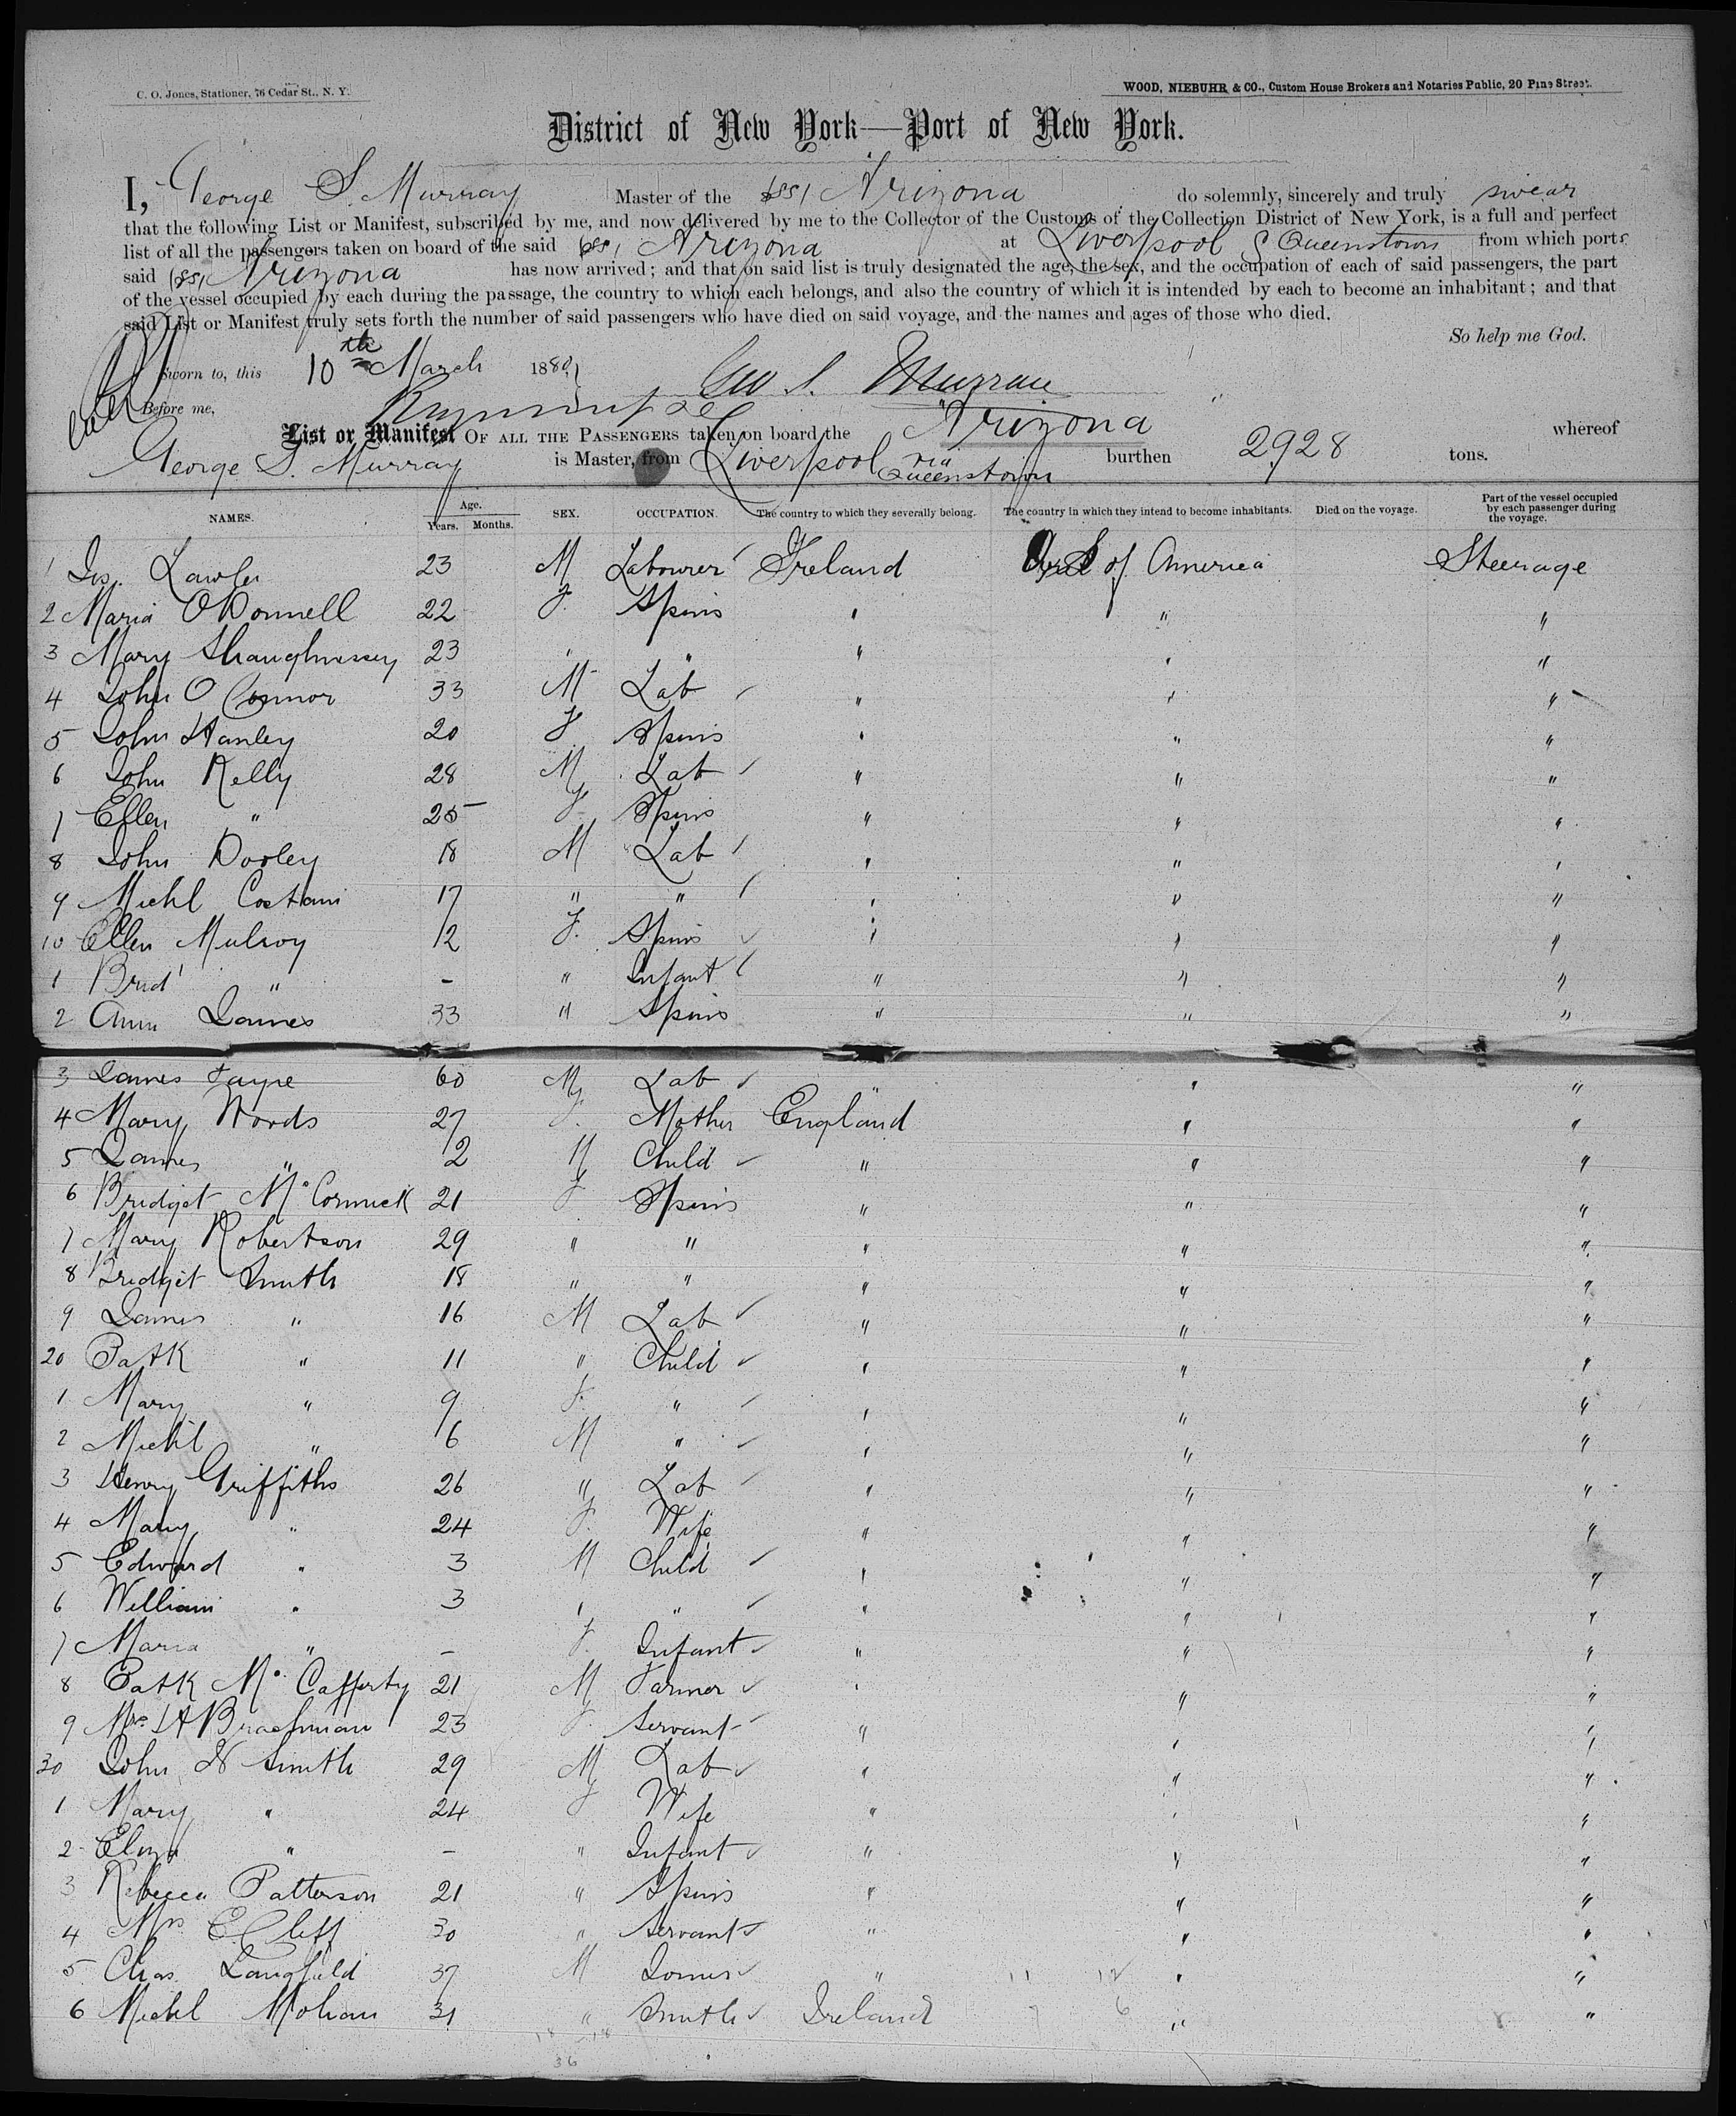 C. O. Jones, Stationer, 76 Cedar St., N. Y.
WOOD, NIEBUHR & CO., Custom House Brokers and Notaries Public, 20 Pine Street.
District of New York—Port of New York.
I, George S. Murray Master of the SS Arizona do solemnly, sincerely and truly swear
that the following List or Manifest, subscribed by me, and now delivered by me to the Collector of the Customs of the Collection District of New York, is a full and perfect
list of all the passengers taken on board of the said SS Arizona at Liverpool & Queenstown from which ports
said SS Arizona has now arrived; and that on said list is truly designated the age, the sex, and the occupation of each of said passengers, the part
of the vessel occupied by each during the passage, the country to which each belongs, and also the country of which it is intended by each to become an inhabitant; and that
said List or Manifest truly sets forth the number of said passengers who have died on said voyage, and the names and ages of those who died.
So help me God.
Sworn to, this 10th March 188
Geo S. Murray
Before me,
List or Manifest OF ALL THE PASSENGERS taken on board the Arizona whereof
George S. Murray is Master, from Liverpool via Queenstown burthen 2928 tons.
NAMES. Age. Years. Months. SEX. OCCUPATION. The country to which they severally belong. The country in which they intend to become inhabitants. Died on the voyage. Part of the vessel occupied by each passenger during the voyage.
1 Jas. Lawler 23 M Labourer Ireland of America Steerage
2 Maria O'Donnell 22 F. Spins " " "
3 Mary Shaughnessy 23 " " " " "
4 John O'Connor 33 M Lab " " "
5 John Hanley 20 F Spins " " "
6 John Kelly 28 M Lab " " "
7 Ellen " 25 F Spins " " "
8 John Dooley 18 M Lab " " "
9 Michl 17 " " " " "
10 Ellen Mulroy 12 F. Spins " " "
1 Brid' " - " Infant " " "
2 Ann James 33 " Spins " " "
3 James 60 M Lab " " "
4 Mary Woods 27 F. Mother England " "
5 James " 2 M Child " " "
6 Bridget McCormick 21 F Spins " " "
7 Mary Robertson 29 " " " " "
8 Bridget Smith 18 " " " " "
9 James " 16 M Lab " " "
20 Patk " 11 " Child " " "
1 Mary " 9 F. " " " "
2 Michl " 6 M " " " "
3 Henry Griffiths 26 " Lab " " "
4 Mary " 24 F. Wife " " "
5 Edward " 3 M Child " " "
6 William " 3 " " " " "
7 Maria " - F. Infant " " "
8 Patk McCafferty 21 M Farmer " " "
9 Mrs H 23 F. Servant " " "
30 John N Smith 29 M Lab " " "
1 Mary " 24 F Wife " " "
2 Eliza " - " Infant " " "
3 Rebecca Patterson 21 " Spins " " "
4 Mrs E. Cliff 30 " Servant " " "
5 Chas. Langfield 37 M " " "
6 Michl Mohan 31 " Smith Ireland " "
36